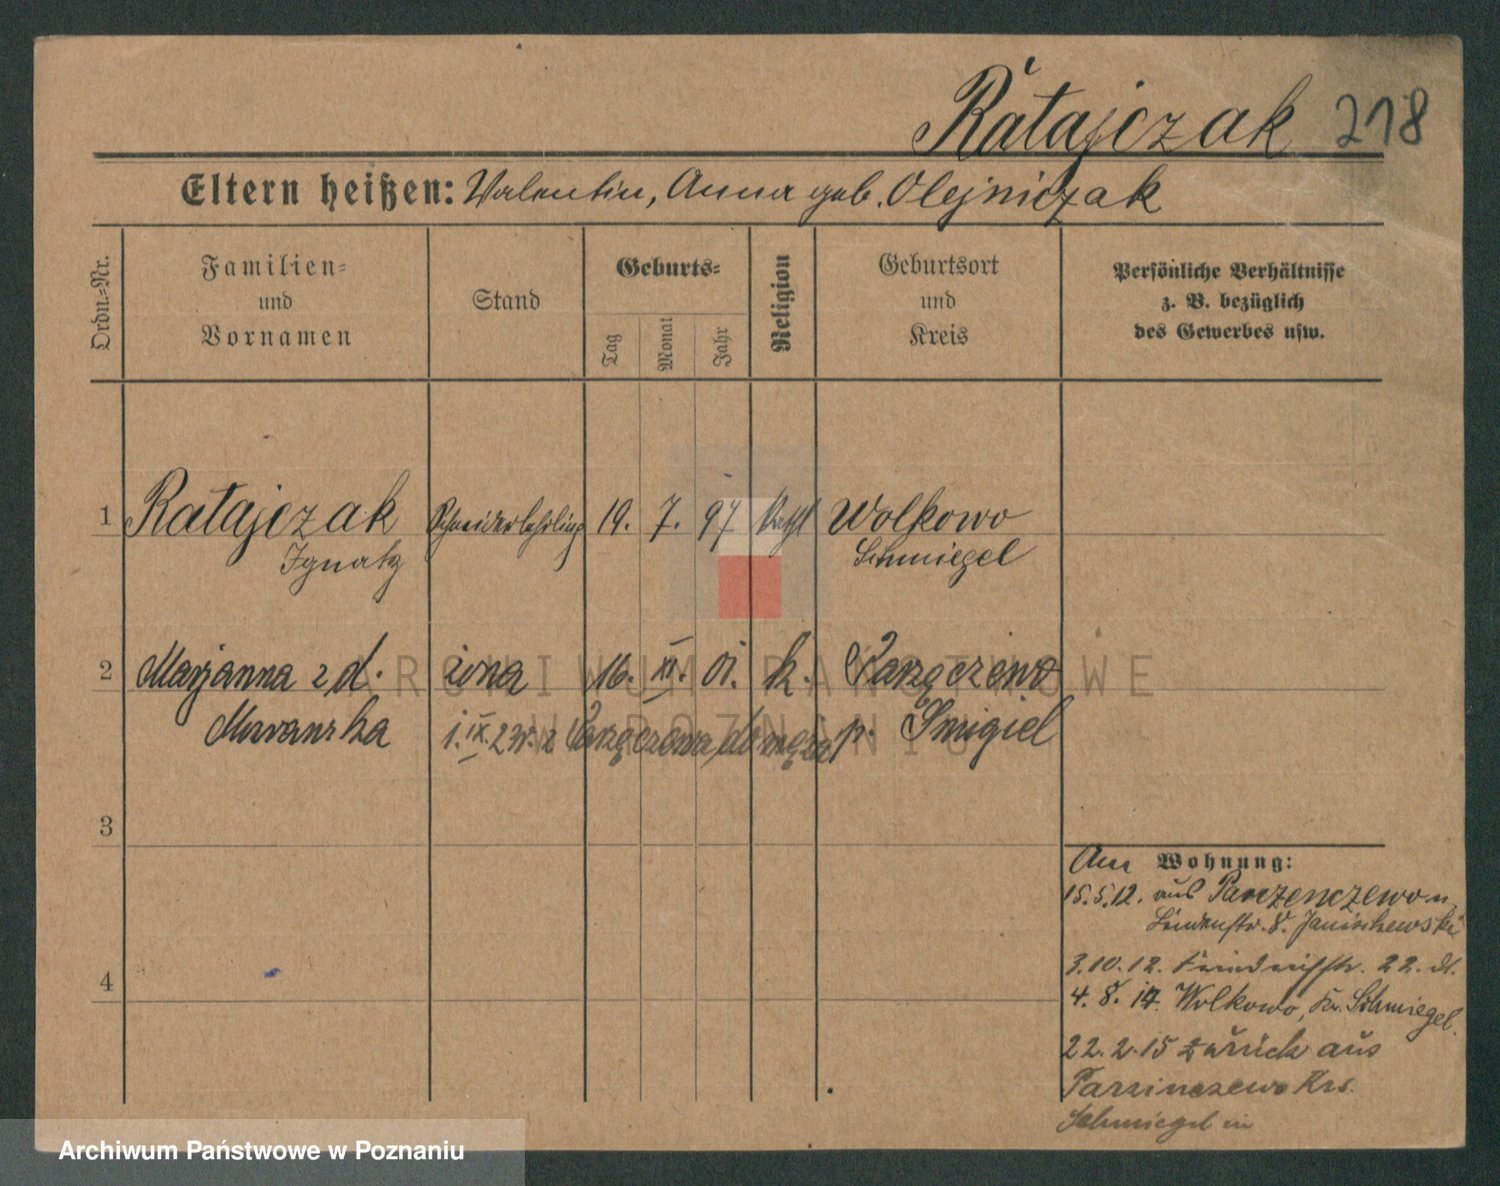 Ratajczak 218
Eltern heißen: Valentin, Anna geb. Olejniczak
Ordn.-Nr.
Familien-
und
Vornamen
Stand
Geburts-
Tag
Monat
Jahr
Religion
Geburtsort
und
Kreis
Persönliche Verhältnisse
z. B. bezüglich
des Gewerbes usw.
1 Ratajczak Schneiderlehrling 19. 7. 97 kath Wolkowo
Ignatz Schmiegel
2 Marjanna z d. żona 16. XI. 01. k. Parzęczewo
Murawska i. IX. z Parzęczewa do męża p. Śmigiel
3
4
Am Wohnung:
15.5.12. aus Parzenczewo n.
Lindenstr. 8. Janiszewski
3.10.12. Friedrichstr. 22. dl.
4. 8. 14. Wolkowo, Kr. Schmiegel.
22.2.15 zurück aus
Parzinczewo Krs.
Schmiegel in
ARCHIWUM PAŃSTWOWE
W POZNANIU
Archiwum Państwowe w Poznaniu